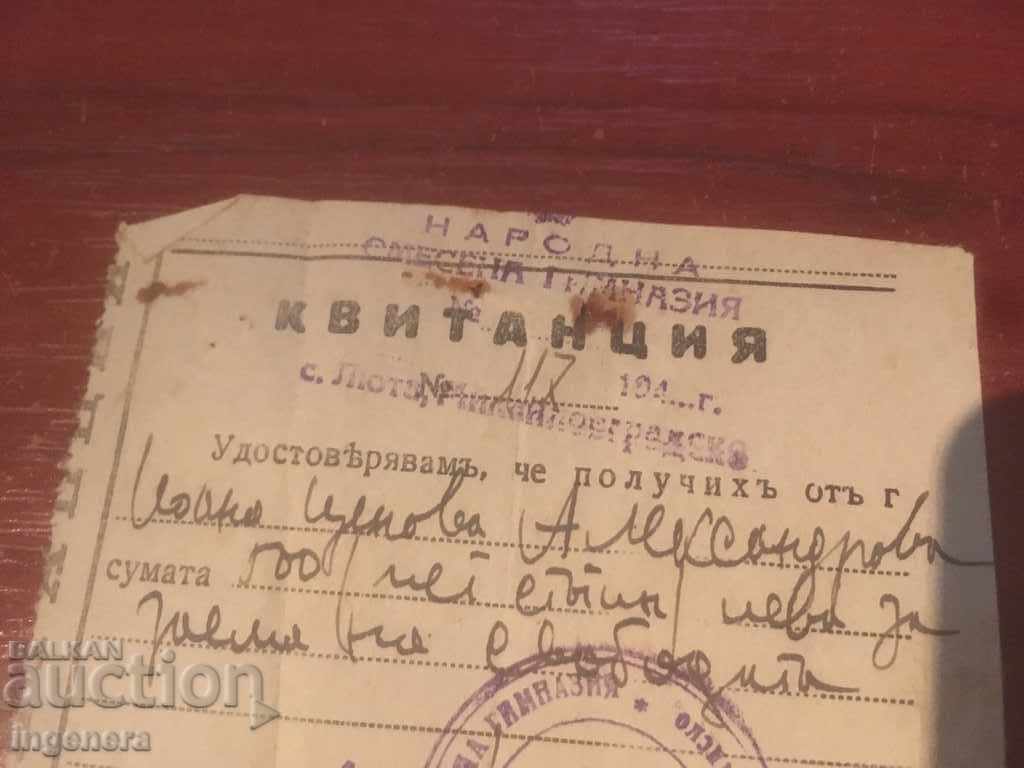 НАРОДНА
СМЕСЕНА ГИМНАЗИЯ
№
КВИТАНЦИЯ
№ 117 194 г.
с. Люта, Михайловградско
Удостовѣрявамъ, че получихъ отъ г
Иона Ценова Александрова
сумата 500 / петстотин / лева за
заема на свободата
ГИМНАЗИЯ *
BALKAN
auction
ingenera